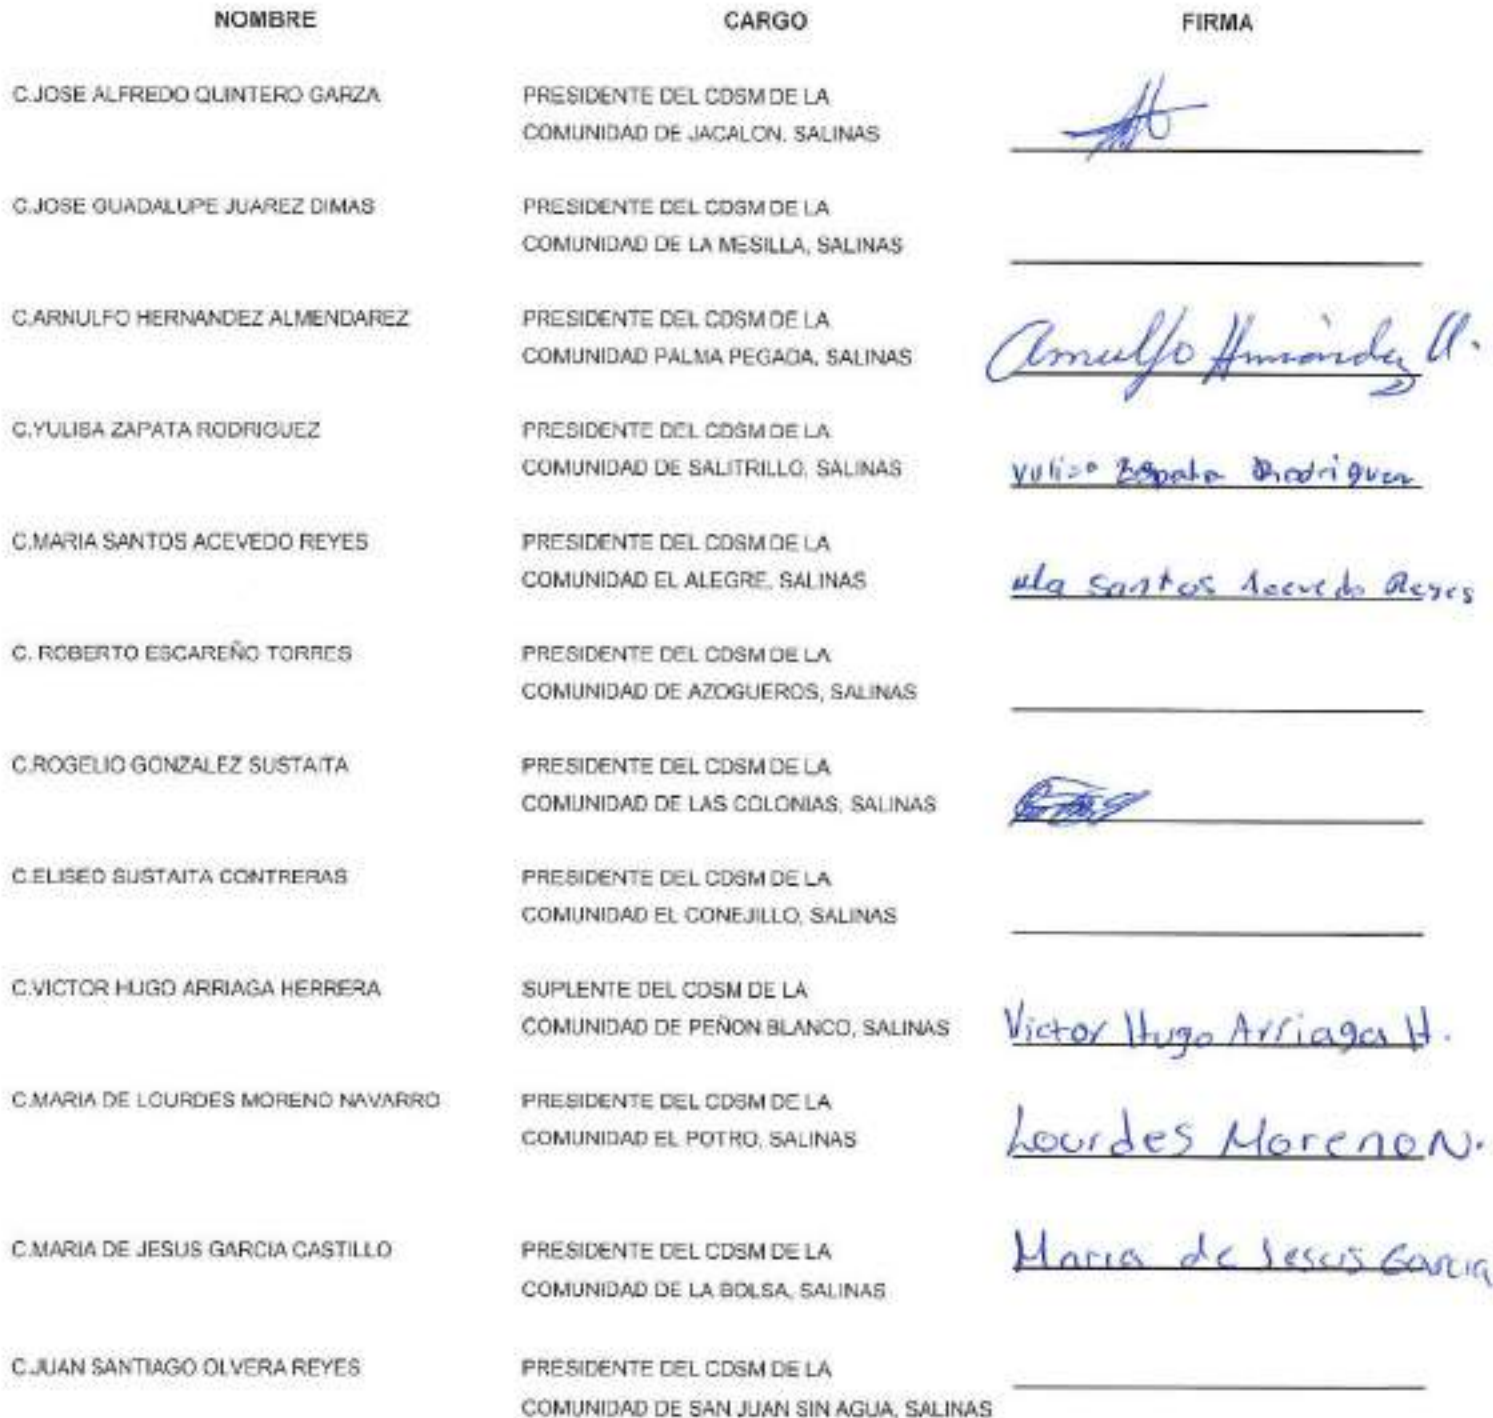 NOMBRE CARGO FIRMA
C.JOSE ALFREDO QUINTERO GARZA PRESIDENTE DEL CDSM DE LA
COMUNIDAD DE JACALON, SALINAS
C.JOSE GUADALUPE JUAREZ DIMAS PRESIDENTE DEL CDSM DE LA
COMUNIDAD DE LA MESILLA, SALINAS
C.ARNULFO HERNANDEZ ALMENDAREZ PRESIDENTE DEL CDSM DE LA
COMUNIDAD PALMA PEGADA, SALINAS Arnulfo Hernández A.
C.YULISA ZAPATA RODRIGUEZ PRESIDENTE DEL CDSM DE LA
COMUNIDAD DE SALITRILLO, SALINAS Yulisa Zapata Rodriguez
C.MARIA SANTOS ACEVEDO REYES PRESIDENTE DEL CDSM DE LA
COMUNIDAD EL ALEGRE, SALINAS Ma Santos Acevedo Reyes
C. ROBERTO ESCAREÑO TORRES PRESIDENTE DEL CDSM DE LA
COMUNIDAD DE AZOGUEROS, SALINAS
C.ROGELIO GONZALEZ SUSTAITA PRESIDENTE DEL CDSM DE LA
COMUNIDAD DE LAS COLONIAS, SALINAS
C.ELISEO SUSTAITA CONTRERAS PRESIDENTE DEL CDSM DE LA
COMUNIDAD EL CONEJILLO, SALINAS
C.VICTOR HUGO ARRIAGA HERRERA SUPLENTE DEL CDSM DE LA
COMUNIDAD DE PEÑON BLANCO, SALINAS Victor Hugo Arriaga H.
C.MARIA DE LOURDES MORENO NAVARRO PRESIDENTE DEL CDSM DE LA
COMUNIDAD EL POTRO, SALINAS Lourdes Moreno N.
C.MARIA DE JESUS GARCIA CASTILLO PRESIDENTE DEL CDSM DE LA Maria de Jesus Garcia
COMUNIDAD DE LA BOLSA, SALINAS
C.JUAN SANTIAGO OLVERA REYES PRESIDENTE DEL CDSM DE LA
COMUNIDAD DE SAN JUAN SIN AGUA, SALINAS